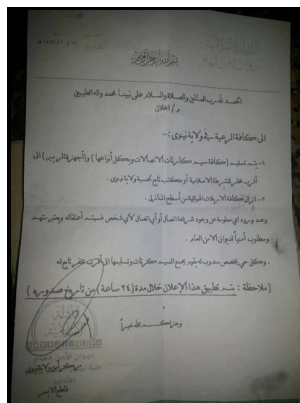 بسم الله الرحمن الرحيم
الحمد لله رب العالمين والصلاة والسلام على نبينا محمد وآله الطيبين
م / إعلان
الى كافة الرعية في ولاية نينوى :-
١- يتم تسليم (كافة سيم كارتات الاتصالات وبكل أنواعها) و(أجهزة) الى
أقرب مخفر للشرطة الاسلامية أو مكتب تابع لحسبة ولاية نينوى .
٢- انزال كافة من أسطح المنازل .
وعند ورود أي معلومة عن وجود شريحة اتصال أو أي اتصال لأي شخص فسيتم اعتقاله ويعتبر متهم
ومطلوب أمنياً لديوان الأمن العام .
وكل حي يخصص مندوب له يقوم بجمع السيم كارتات وتسليمها الى أقرب مخفر تابع له
(ملاحظة : يتم تطبيق هذا الإعلان خلال مدة (٢٤ ساعة) من تاريخ صدوره)
وجزاكم الله خيراً